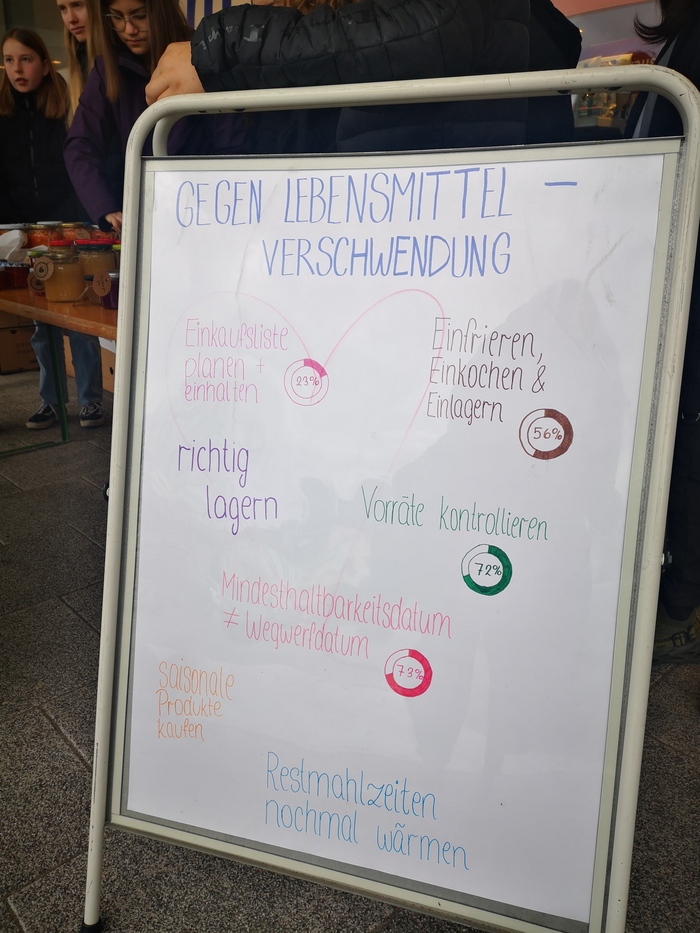 GEGEN LEBENSMITTEL –
VERSCHWENDUNG
Einkaufsliste
planen +
einhalten
23%
Einfrieren,
Einkochen &
Einlagern
56%
richtig
lagern
Vorräte kontrollieren
72%
Mindesthaltbarkeitsdatum
≠ Wegwerfdatum
73%
saisonale
Produkte
kaufen
Restmahlzeiten
nochmal wärmen